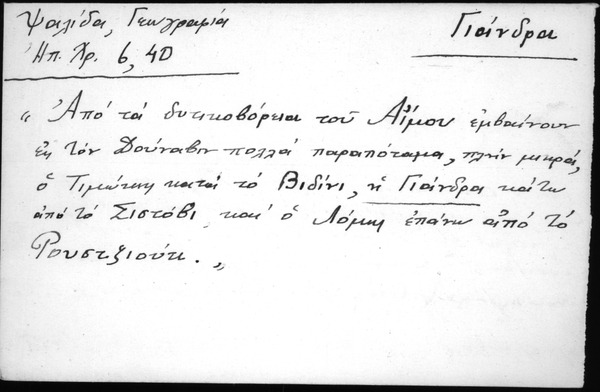 Ψαλίδα, Γεωγραφία
Ηπ. Χρ. 6, 40
Γιάνδρα
" Ἀπό τά δυτικοβόρεια τοῦ Αἵμου ἐμβαίνουν
εις τόν Δούναβιν πολλά παραπόταμα, πλήν μικρά,
ὁ Τιμώκης κατά τό Βιδίνι, ἡ Γιάνδρα κάτω
ἀπό τό Σιστόβι καί ὁ Λόμης ἐπάνω ἀπό τό
Ρουστζιούκι. "